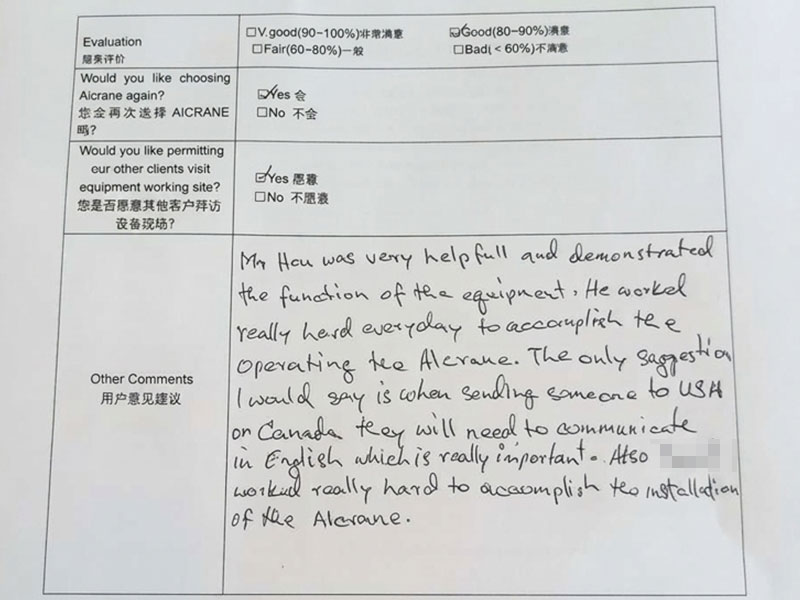 Evaluation
服务评价
☐V.good(90-100%)非常满意 ☑Good(80-90%)满意
☐Fair(60-80%)一般 ☐Bad(<60%)不满意
Would you like choosing
Aicrane again?
您会再次选择 AICRANE
吗?
☑Yes 会
☐No 不会
Would you like permitting
eur other clients visit
equipment working site?
您是否愿意其他客户拜访
设备现场?
☑Yes 愿意
☐No 不愿意
Other Comments
用户意见建议
Mr Hou was very helpfull and demonstrated
the function of the equipment. He worked
really hard everyday to accomplish the
Operating the Aicrane. The only suggestion
I would say is when sending someone to USA
or Canada they will need to communicate
in English which is really important. Also
worked really hard to accomplish the installation
of the Aicrane.